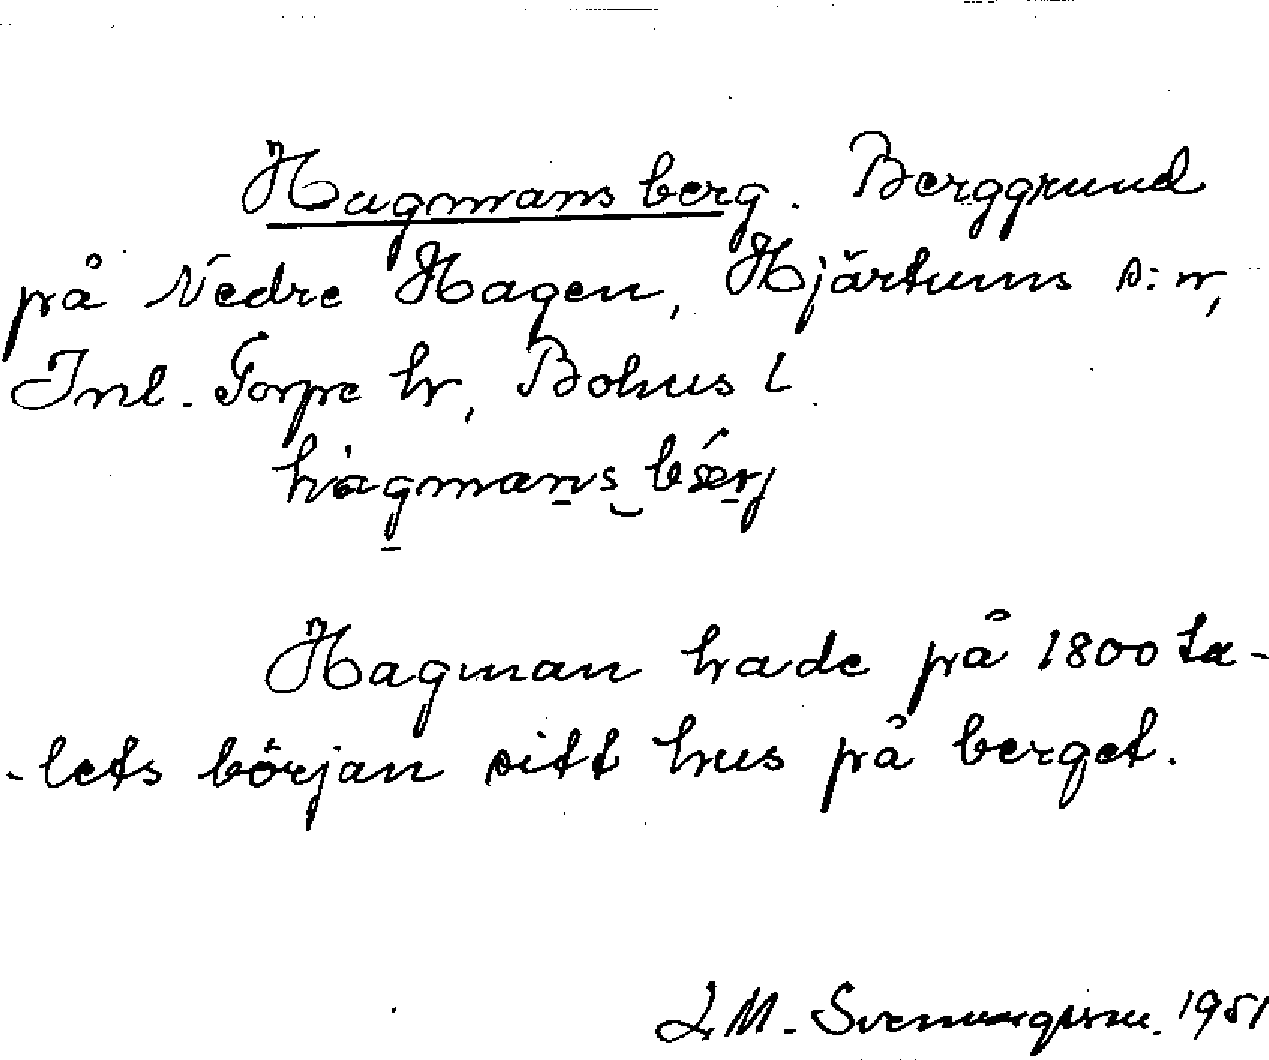 Hagmans berg. Berggrund
på Nedre Hagen, Hjärtums s:n,
Inl. Torpe hr, Bohus l.
hàgmans bǽrj
Hagman hade på 1800 ta-
-lets början sitt hus på berget.
L. M. Svenungsson. 1951